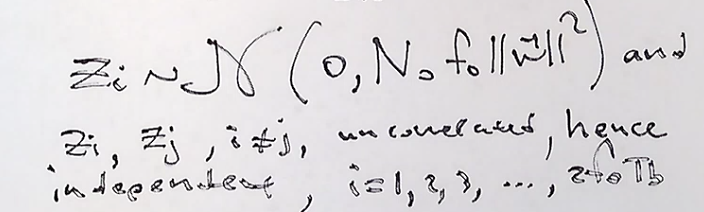 Zi ~ N (0, N₀ f₀ ||w⃗||²) and
Zi, Zj, i≠j, uncorrelated, hence
independent, i=1, 2, 3, ..., 2f₀Tb